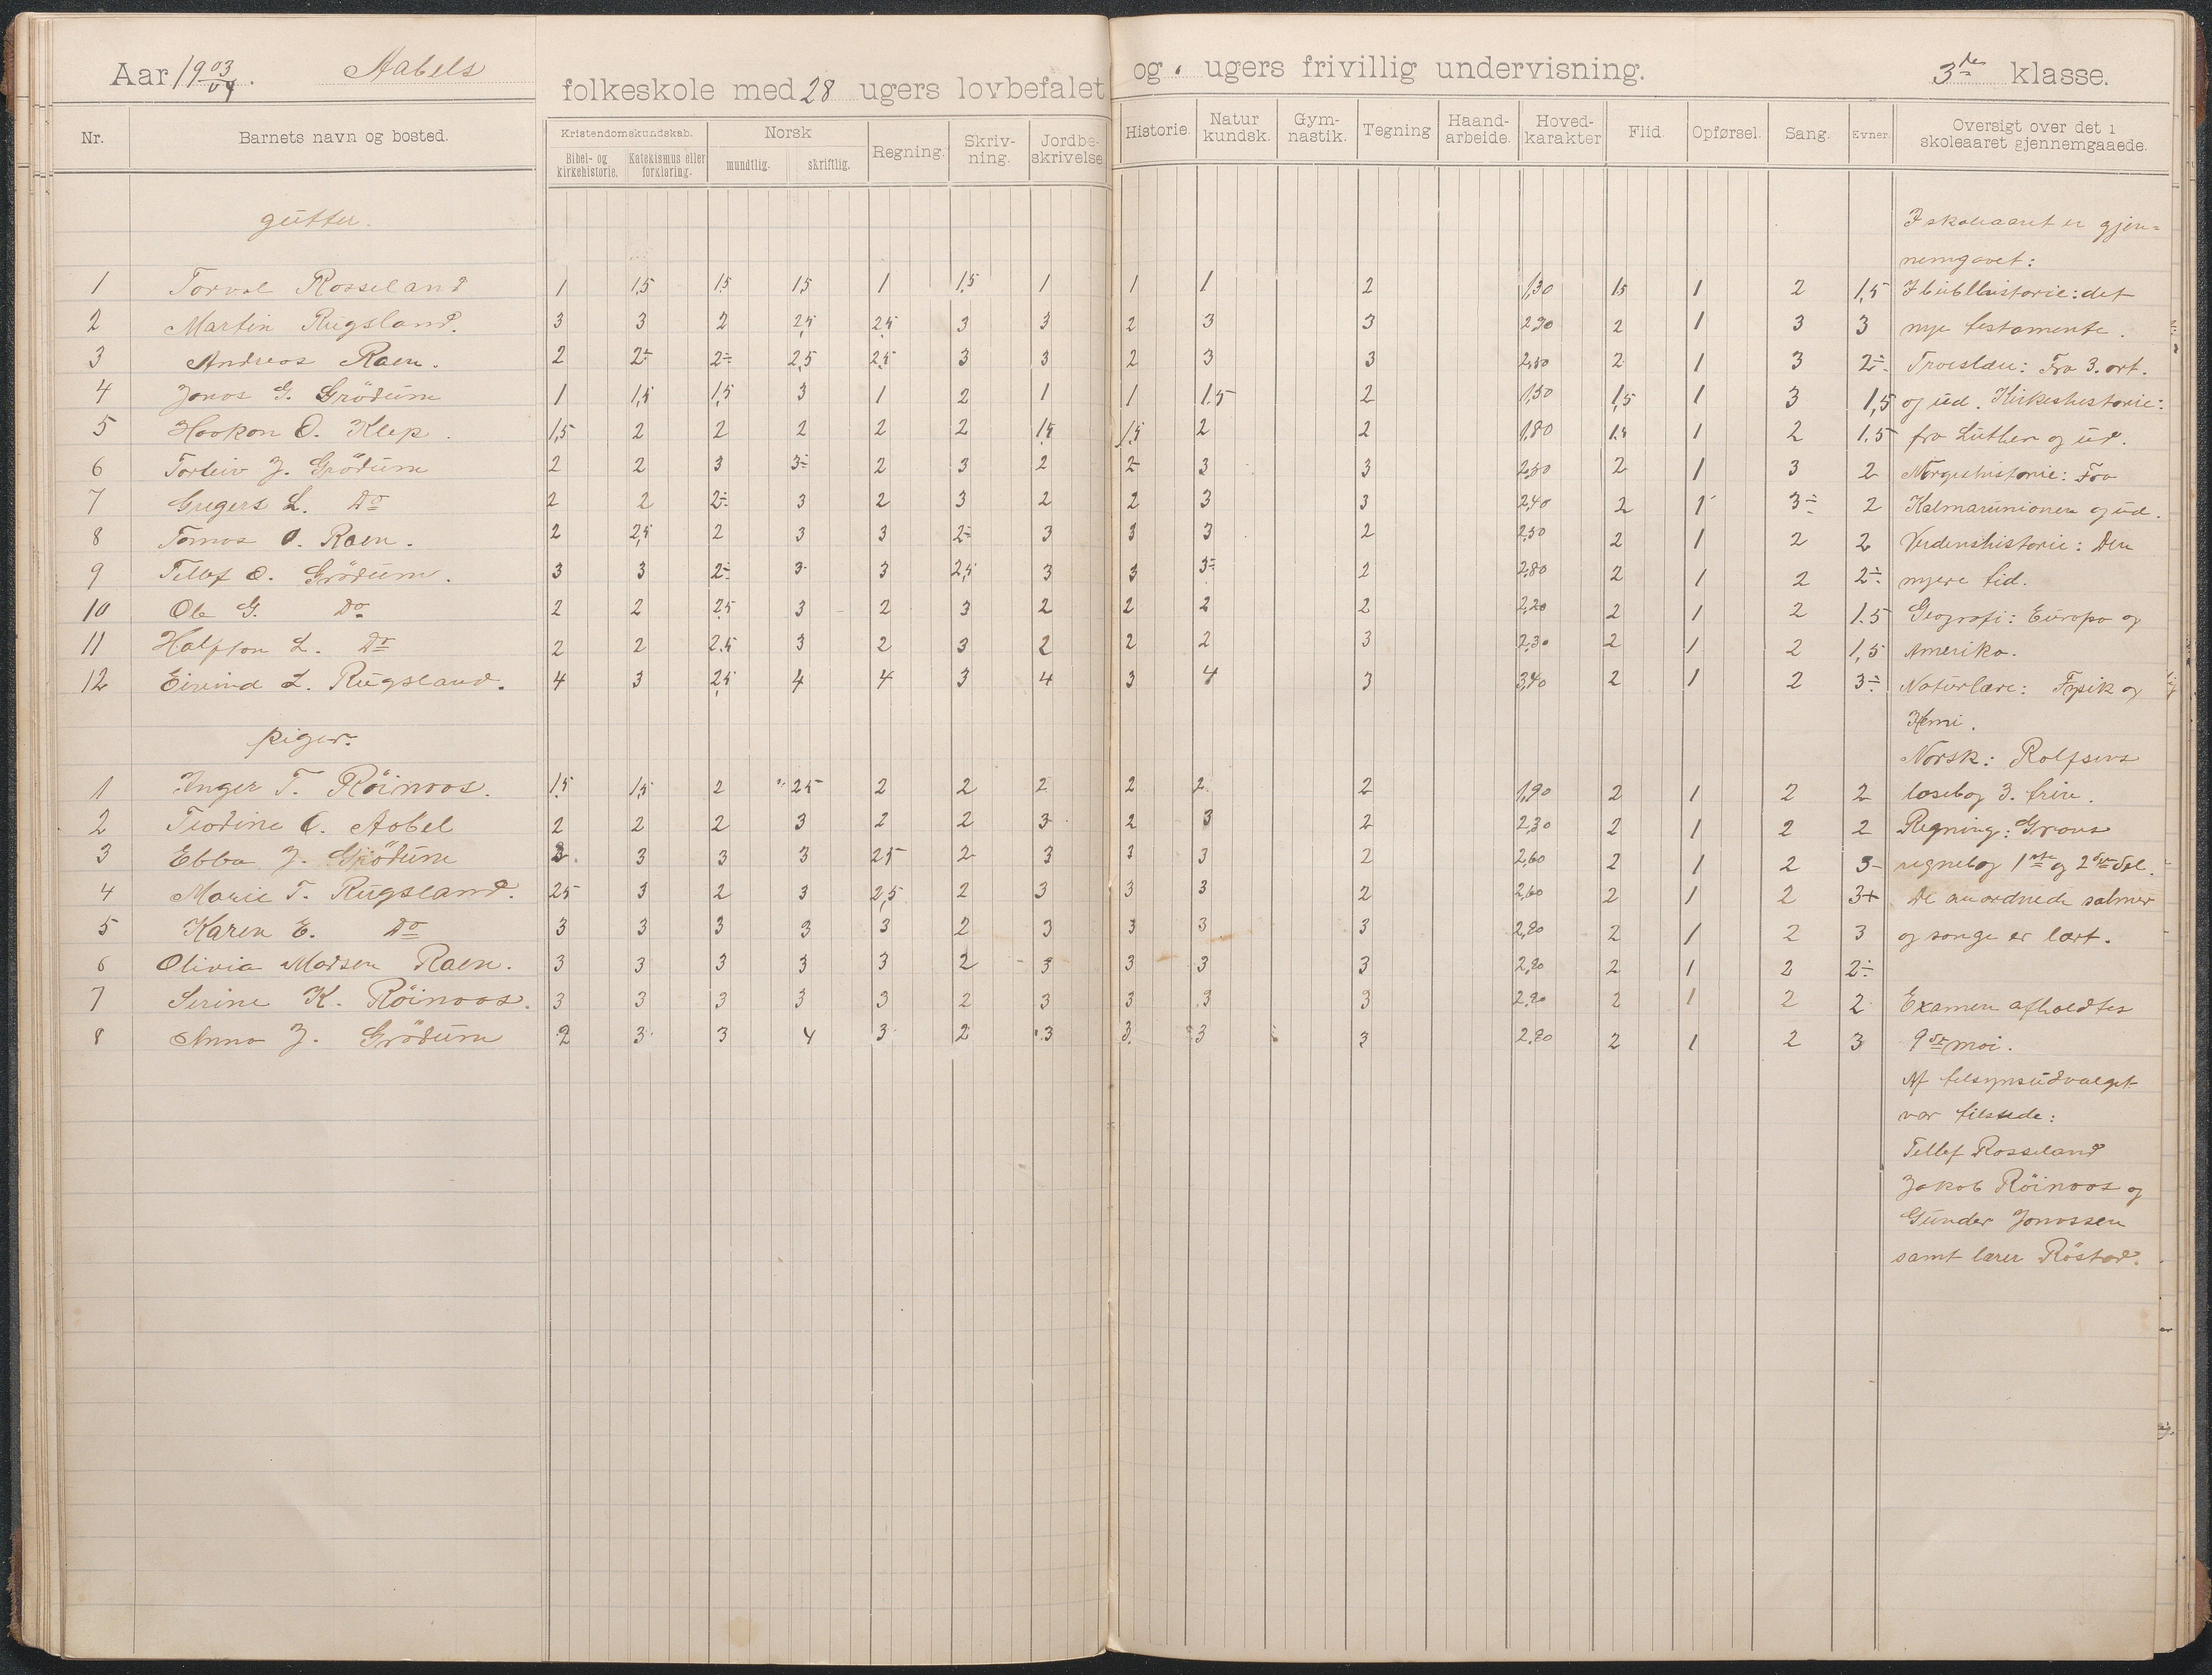 Aar 1903/04. Aabels folkeskole med 28 ugers lovbefalet og . ugers frivillig undervisning. 3de klasse.
Nr. Barnets navn og bosted. Kristendomskundskab. Norsk Regning. Skriv-ning. Jordbe-skrivelse Historie. Natur kundsk. Gym-nastik. Tegning Haand-arbeide. Hoved-karakter Flid. Opførsel. Sang. Evner. Oversigt over det i skoleaaret gjennemgaaede.
Bibel- og kirkehistorie. Katekismus eller forklaring. mundtlig. skriftlig.
gutter. I skoleaaret er gjen=
nemgaaet:
1 Torval Rosseland 1 1,5 1,5 1,5 1 1,5 1 1 1 2 1,30 1,5 1 2 1,5 I biblhistorie: det
2 Martin Rugsland. 3 3 2 2,5 2,5 3 3 2 3 3 2,70 2 1 3 3 nye testamente.
3 Andreas Raen. 2 2÷ 2÷ 2,5 2,5 3 3 2 3 3 2,50 2 1 3 2÷ Troeslære: Fra 3. art.
4 Jonas G. Grödum 1 1,5 1,5 3 1 2 1 1 1.5 2 1,50 1,5 1 3 1,5 og ud. Kirkeshistorie:
5 Haakon O. Klep. 1,5 2 2 2 2 2 1,5 1,5 2 2 1,80 1,5 1 2 1.5 fra Luther og ud.
6 Torleiv J. Grödum 2 2 3 3÷ 2 3 2 2 3 3 2,50 2 1 3 2 Norgeshistorie: Fra
7 Gregers L. Do 2 2 2÷ 3 2 3 2 2 3 3 2,40 2 1 3÷ 2 Kalmarunionen og ud.
8 Tomas O. Raen. 2 2,5 2 3 3 2÷ 3 3 3 2 2,50 2 1 2 2 Verdenshistorie: Den
9 Tellef O. Grödum. 3 3 2÷ 3 3 2,5 3 3 3÷ 2 2,80 2 1 2 2÷ nyere tid.
10 Ole G. Do 2 2 2,5 3 2 3 2 2 2 2 2,20 2 1 2 1.5 Geografi: Europa og
11 Halfton L. Do 2 2 2.5 3 2 3 2 2 2 3 2,30 2 1 2 1,5 Amerika.
12 Eivind L. Rugsland. 4 3 2,5 4 4 3 4 3 4 3 3,40 2 1 2 3÷ Naturlære: Fysik og
Kemi.
piger. Norsk: Rolfsens
1 Inger T. Röinoos. 1,5 1,5 2 2,5 2 2 2 2 2 2 1,90 2 1 2 2 læsebog 3. trin.
2 Teodine O. Aabel 2 2 2 3 2 2 3 2 3 2 2,30 2 1 2 2 Regning: Graus
3 Ebba J. Grödum 3 3 3 3 2,5 2 3 3 3 2 2,60 2 1 2 3- regnebog 1ste og 2den del.
4 Marie T. Rugsland. 2,5 3 2 3 2,5 2 3 3 3 2 2,60 2 1 2 3+ De anordnede salmer
5 Karen E. Do 3 3 3 3 3 2 3 3 3 3 2,90 2 1 2 3 og sange er lært.
6 Olivia Madsen Raen. 3 3 3 3 3 2 3 3 3 3 2,90 2 1 2 2÷
7 Serine K. Röinoos. 3 3 3 3 3 2 3 3 3 3 2,90 2 1 2 2 Examen afholdtes
8 Anna J. Grödum 2 3 3 4 3 2 3 3 3 3 2,90 2 1 2 3 9de mai.
Af tilsynsudvalget
var tilstede:
Tellef Rosseland
Jakob Röinoos og
Gunder Jonassen
samt lærer Röstad.